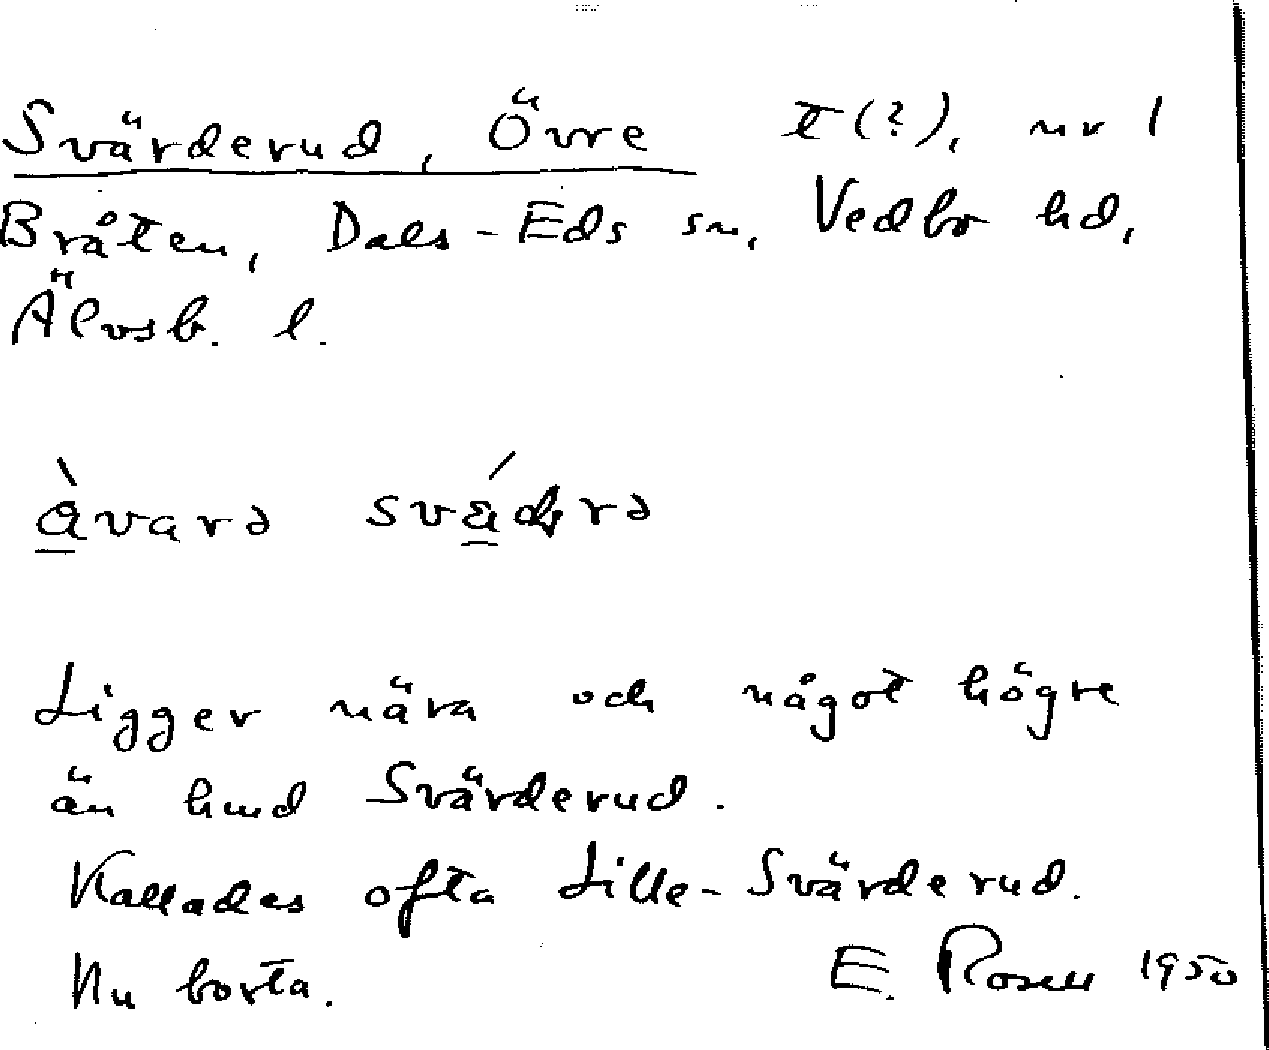 Svärderud, Övre t(?), nr 1
Bråten, Dals-Eds sn, Vedbo hd,
Älvsb. l.
àvarə
Ligger nära och något högre
än hmd Svärderud.
Kallades ofta Lille-Svärderud.
Nu borta. E. Rosell 1950